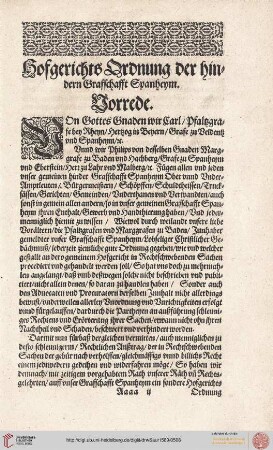 Hofgerichts Ordnung der hin-
dern Graffschafft Spanheym.
Vorrede.
VOn Gottes Gnaden wir Carl / Pfaltzgra-
fe bey Rheyn / Hertzog in Beyern / Grafe zu Veldentz
und Spanheym / ꝛc.
Unnd wir Philips von desselben Gnaden Marg-
grafe zu Baden und Hachberg / Grafe zu Spanheym
und Eberstein / Herr zu Lahr und Malberg / ꝛc. Fügen allen und jeden
unser gemeinen hinder Graffschafft Spanheym Ober unnd Under-
Amptleuten / Bürgermeistern / Schöpffen / Schuldtheissen / Truck-
sässen / Gerichten / Gemeinden / Underthanen und Verwandten / auch
sonst in gemein allen andern / so in unser gemeinen Graffschafft Span-
heym ihren Enthalt / Gewerb und Handthierung haben / Und jeder-
menniglich hiemit zuwissen / Wiewol durch weilandt unsere liebe
Vorältern / die Pfaltzgrafen und Marggrafen zu Baden / Innhaber
gemeldter under Graffschafft Spanheym / Lobseliger Christlicher Ge-
dächtnuß / hiebevor zimliche gute Ordnung gegeben / wie und welcher
gestallt an dero gemeinem Hofgericht in Rechtschwebenden Sachen
procediert und gehandelt werden soll / So hat uns doch zu mehrma-
len angelangt / daß umb dessentwegen solche nicht beschrieben und publi-
ciert / nicht allein denen / so daran zuschaffen haben / Sonder auch
den Advocaten und Procuratorn derselben Innhalt nicht allerdings
bewust / und derwegen allerley Unordnung und Unrichtigkeiten erfolgt
und fürgelauffen / dardurch die Partheyen an außführung schleuni-
ges Rechtens und Erörterung ihrer Sachen / etwann nicht ohn ihre
Nachtheil und Schaden / beschwert und verhindert worden.
Darmit nun fürbaß dergleichen vermitten / auch menniglichen zu
desto schleunigerm / Rechtlichen Außtrag / der in Rechtschwebenden
Sachen der gebür nach verholffen / gleichmässigs unnd billichs Recht
einem jedwedern gedeyen und widerfahren möge / So haben wir
demnach / mit zeitigem vorgehabtem Rath unserer Räth uñ Rechts-
gelehrten / auff unser Graffschafft Spanheym ein sondere Hofgerichts
Aaaa ij Ordnung